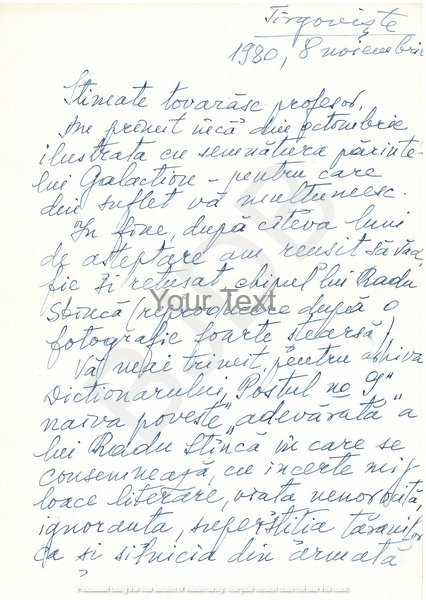 Tîrgoviște
1980, 8 noiembrie
Stimate tovarășe profesor,
Am primit încă din octombrie
ilustrata cu semnătura părinte-
lui Galaction – pentru care
din suflet vă mulțumesc.
În fine, după cîteva luni
de așteptare am reușit să văd
fie și retușat chipul lui Radu
Stîncă (reproducere după o
fotografie foarte ștearsă)
Vă mai trimit, pentru arhiva
Dicționarului, Postul no 9"
naiva poveste „adevărată" a
lui Radu Stîncă în care se
consemnează, cu incerte mij-
loace literare, viața nenorocită,
ignoranta, superstiția țăranilor
ca și silnicia din armată
Your Text
BCDB